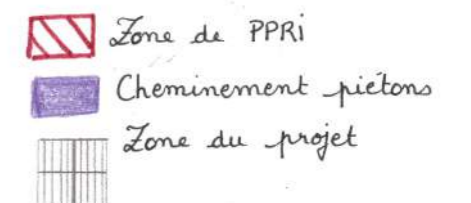 Zone de PPRi
Cheminement piétons
Zone du projet